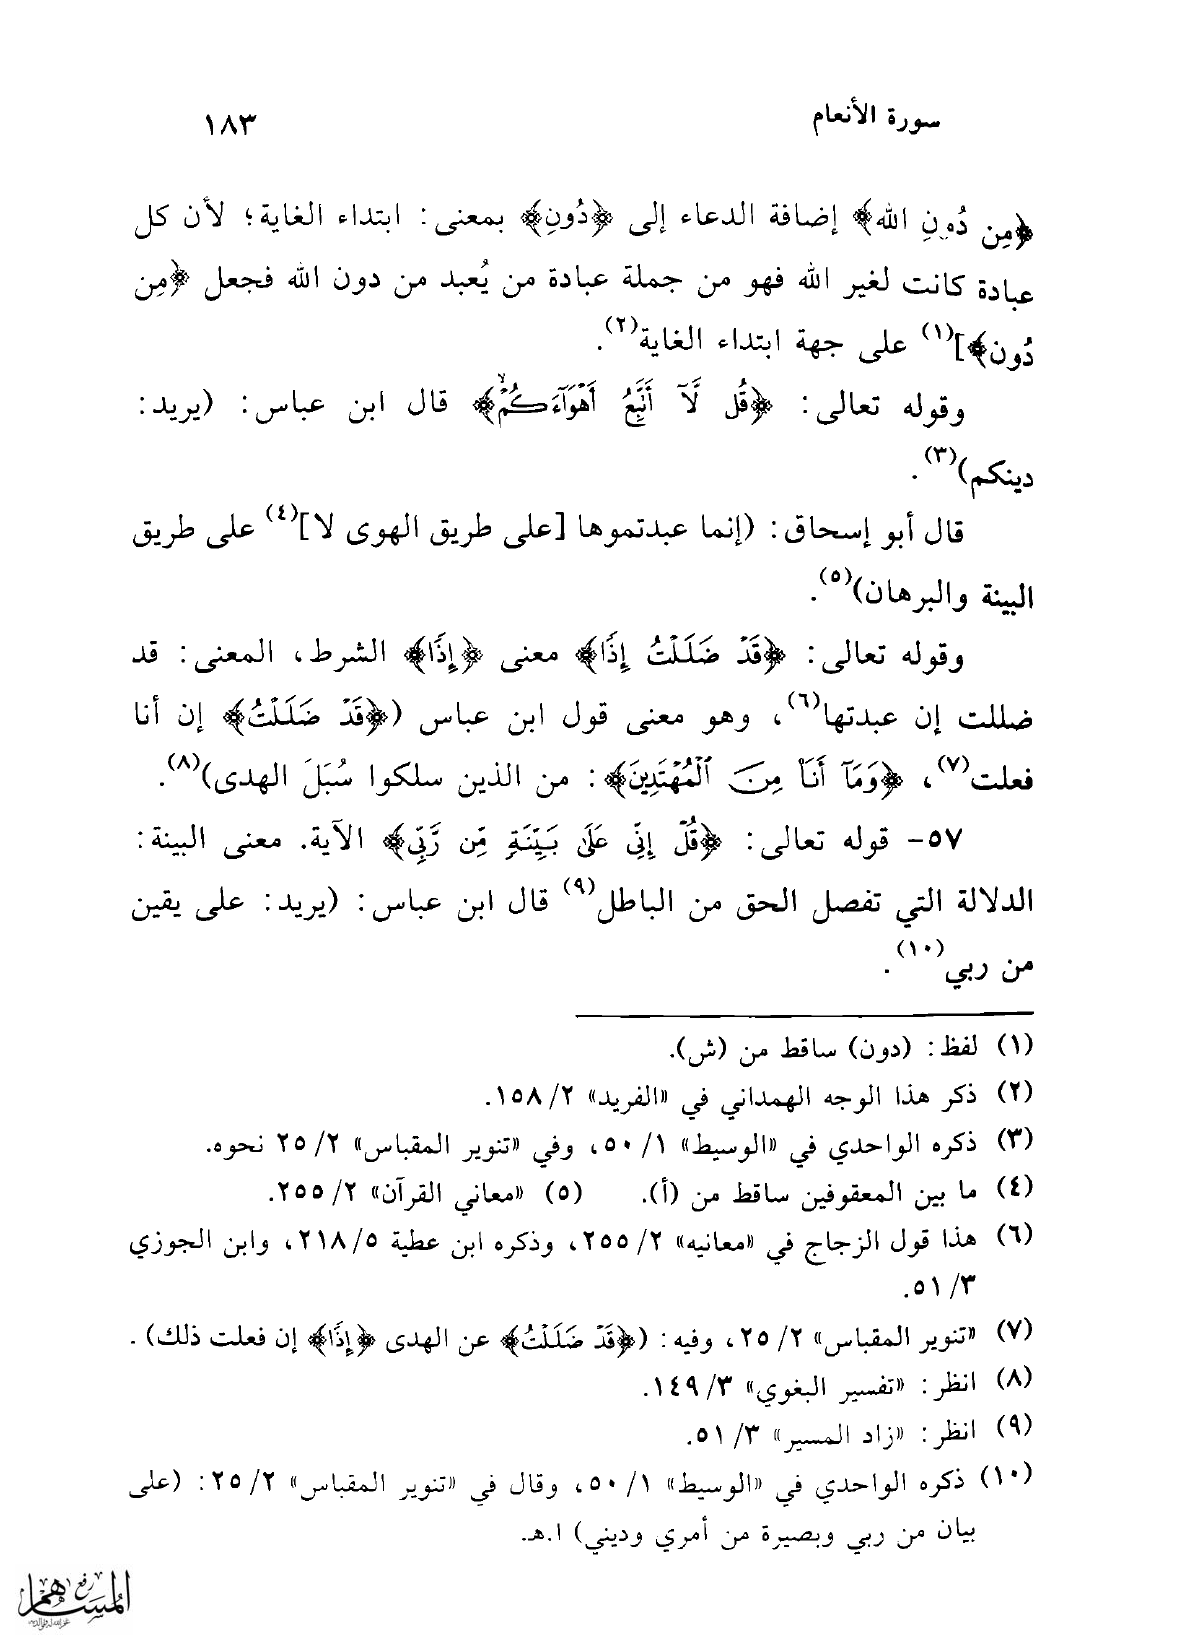 سورة الأنعام ١٨٣
﴿مِن دُونِ الله﴾ إضافة الدعاء إلى ﴿دُونِ﴾ بمعنى: ابتداء الغاية؛ لأن كل
عبادة كانت لغير الله فهو من جملة عبادة من يُعبد من دون الله فجعل ﴿مِن
دُون﴾](١) على جهة ابتداء الغاية(٢).
وقوله تعالى: ﴿قُل لَّآ أَتَّبِعُ أَهْوَآءَكُمْۙ﴾ قال ابن عباس: (يريد:
دينكم)(٣).
قال أبو إسحاق: (إنما عبدتموها [على طريق الهوى لا](٤) على طريق
البينة والبرهان)(٥).
وقوله تعالى: ﴿قَدْ ضَلَلْتُ إِذًا﴾ معنى ﴿إِذًا﴾ الشرط، المعنى: قد
ضللت إن عبدتها(٦)، وهو معنى قول ابن عباس (﴿قَدْ ضَلَلْتُ﴾ إن أنا
فعلت(٧)، ﴿وَمَآ أَنَا۠ مِنَ ٱلْمُهْتَدِينَ﴾: من الذين سلكوا سُبَلَ الهدى)(٨).
٥٧- قوله تعالى: ﴿قُلْ إِنِّى عَلَىٰ بَيِّنَةٍ مِّن رَّبِّى﴾ الآية. معنى البينة:
الدلالة التي تفصل الحق من الباطل(٩) قال ابن عباس: (يريد: على يقين
من ربي(١٠).
(١) لفظ: (دون) ساقط من (ش).
(٢) ذكر هذا الوجه الهمداني في «الفريد» ٢/ ١٥٨.
(٣) ذكره الواحدي في «الوسيط» ١/ ٥٠، وفي «تنوير المقباس» ٢/ ٢٥ نحوه.
(٤) ما بين المعقوفين ساقط من (أ). (٥) «معاني القرآن» ٢/ ٢٥٥.
(٦) هذا قول الزجاج في «معانيه» ٢/ ٢٥٥، وذكره ابن عطية ٥/ ٢١٨، وابن الجوزي
٣/ ٥١.
(٧) «تنوير المقباس» ٢/ ٢٥، وفيه: (﴿قَدْ ضَلَلْتُ﴾ عن الهدى ﴿إِذًا﴾ إن فعلت ذلك).
(٨) انظر: «تفسير البغوي» ٣/ ١٤٩.
(٩) انظر: «زاد المسير» ٣/ ٥١.
(١٠) ذكره الواحدي في «الوسيط» ١/ ٥٠، وقال في «تنوير المقباس» ٢/ ٢٥: (على
بيان من ربي وبصيرة من أمري وديني) ا.هـ.